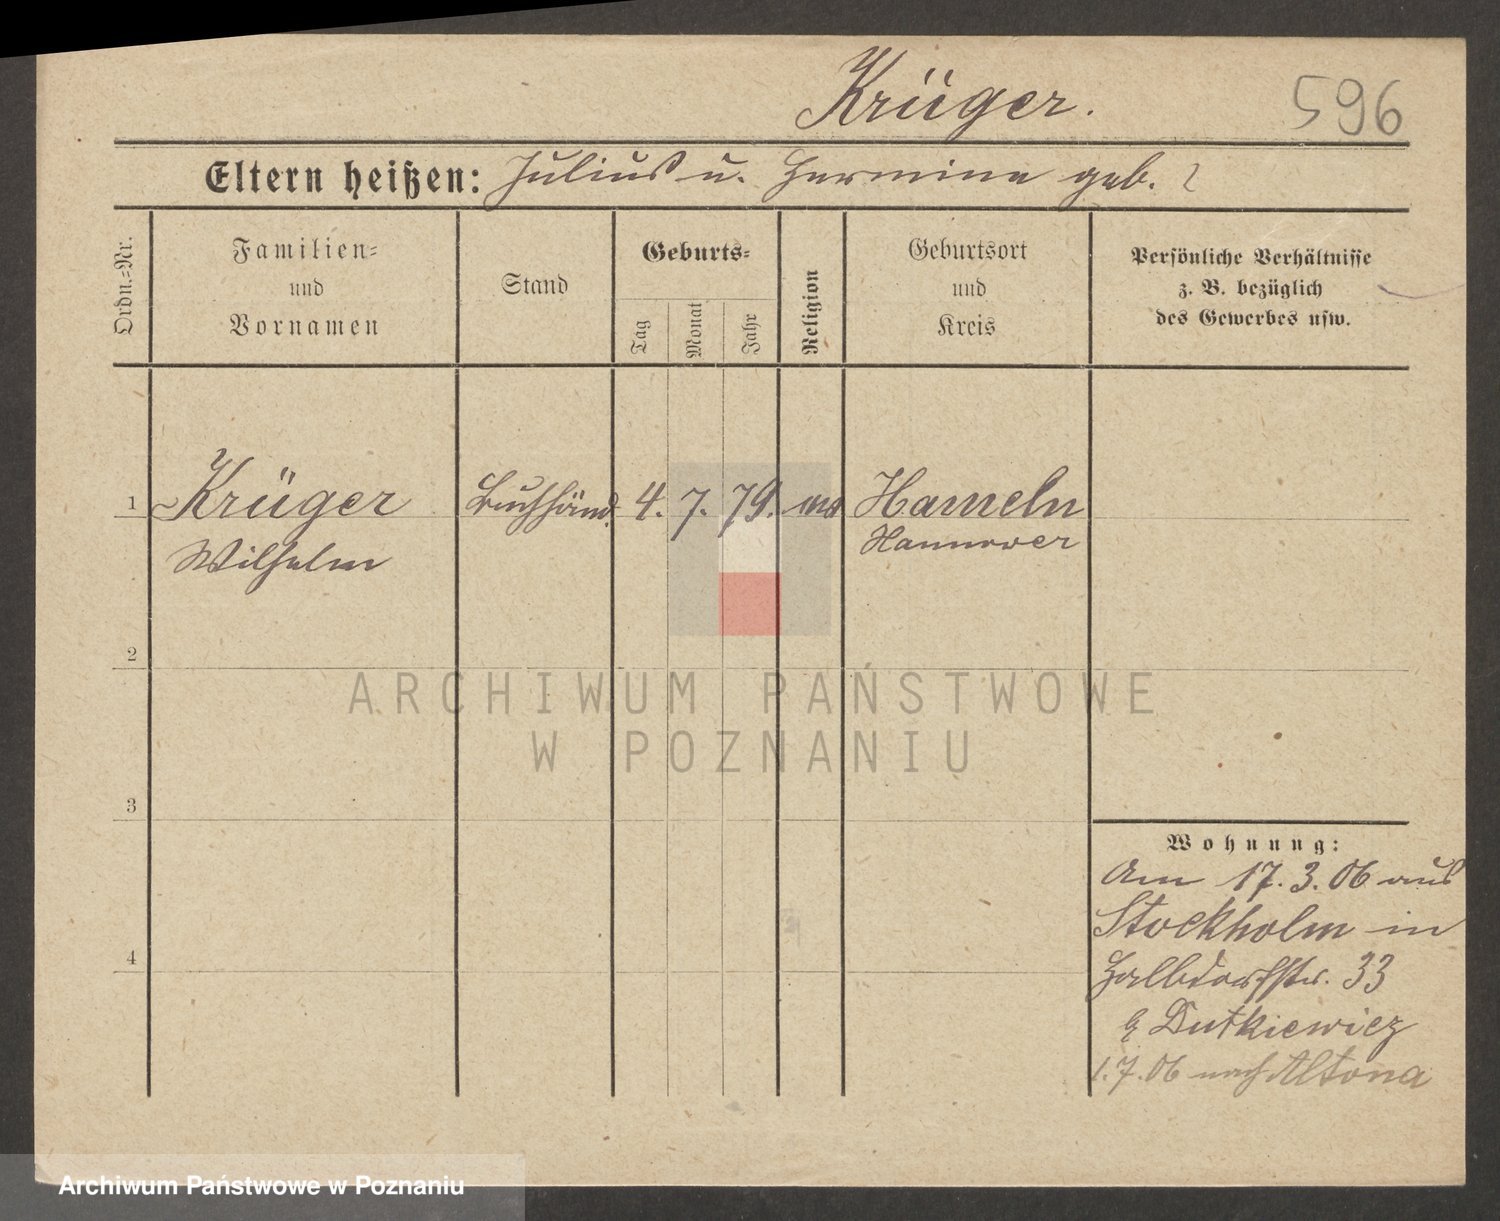 Krüger.
596
Eltern heißen: Julius u. Hermine geb. ?
Ordn.=Nr.
Familien=
und
Vornamen
Stand
Geburts=
Tag
Monat
Jahr
Religion
Geburtsort
und
Kreis
Persönliche Verhältnisse
z. B. bezüglich
des Gewerbes usw.
1 Krüger Buchhänd. 4. 7. 79. Hameln
Wilhelm Hannover
2
3
4
Wohnung:
Am 17. 3. 06 aus
Stockholm in
Halbdorfstr. 33
b Dutkiewicz
1.7.06 nach Altona
ARCHIWUM PAŃSTWOWE
W POZNANIU
Archiwum Państwowe w Poznaniu